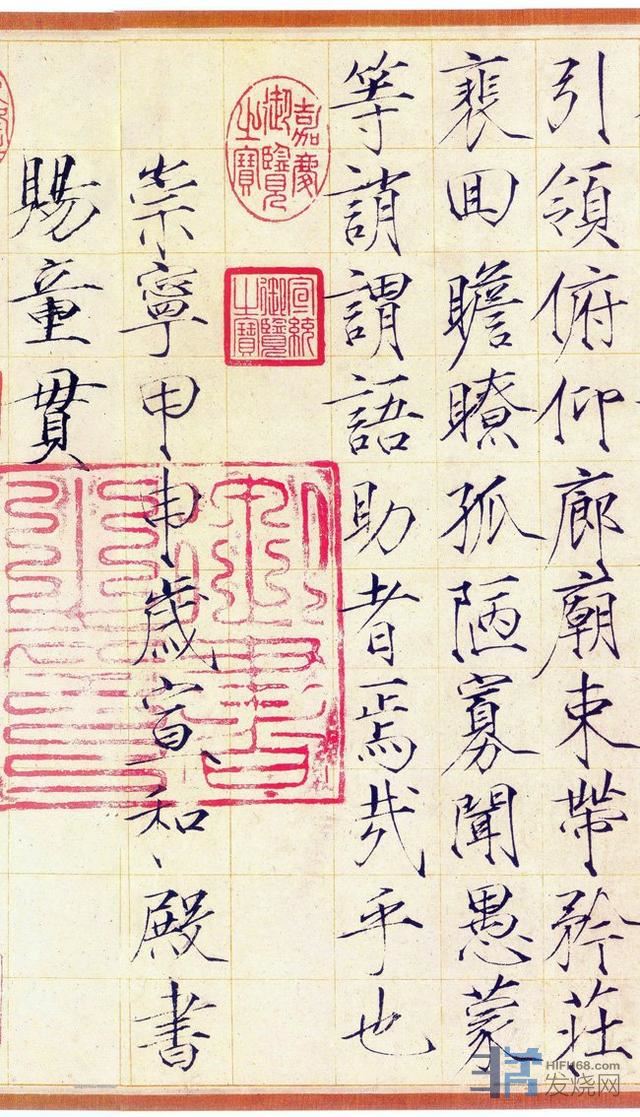 引領俯仰廊廟束帶矜莊
裵囬瞻瞭孤陋寡聞愚蒙
等誚謂語助者焉哉乎也
嘉慶御覽之寶
宣統御覽之寶
崇寧甲申歲宣和殿書
賜童貫
HIFI68.com
发烧网